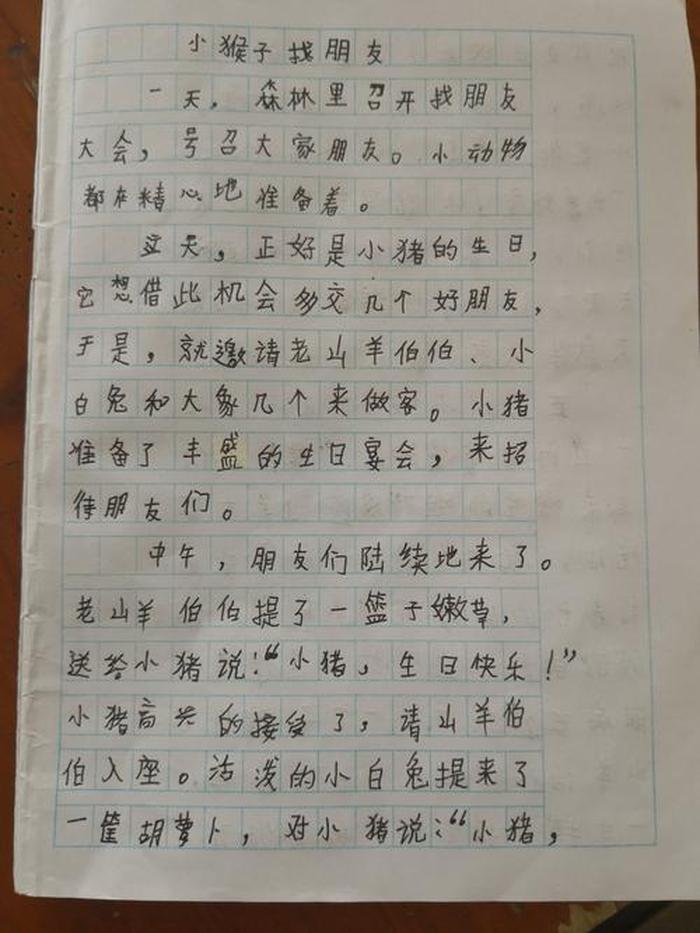 小猴子找朋友
一天，森林里召开找朋友
大会，号召大家朋友。小动物
都在精心地准备着。
这天，正好是小猪的生日，
它想借此机会多交几个好朋友，
于是，就邀请老山羊伯伯、小
白兔和大象几个来做客。小猪
准备了丰盛的生日宴会，来招
待朋友们。
中午，朋友们陆续地来了。
老山羊伯伯提了一篮子嫩草，
送给小猪说：“小猪，生日快乐！”
小猪高兴的接受了，请山羊伯
伯入座。活泼的小白兔提来了
一筐胡萝卜，对小猪说：“小猪，